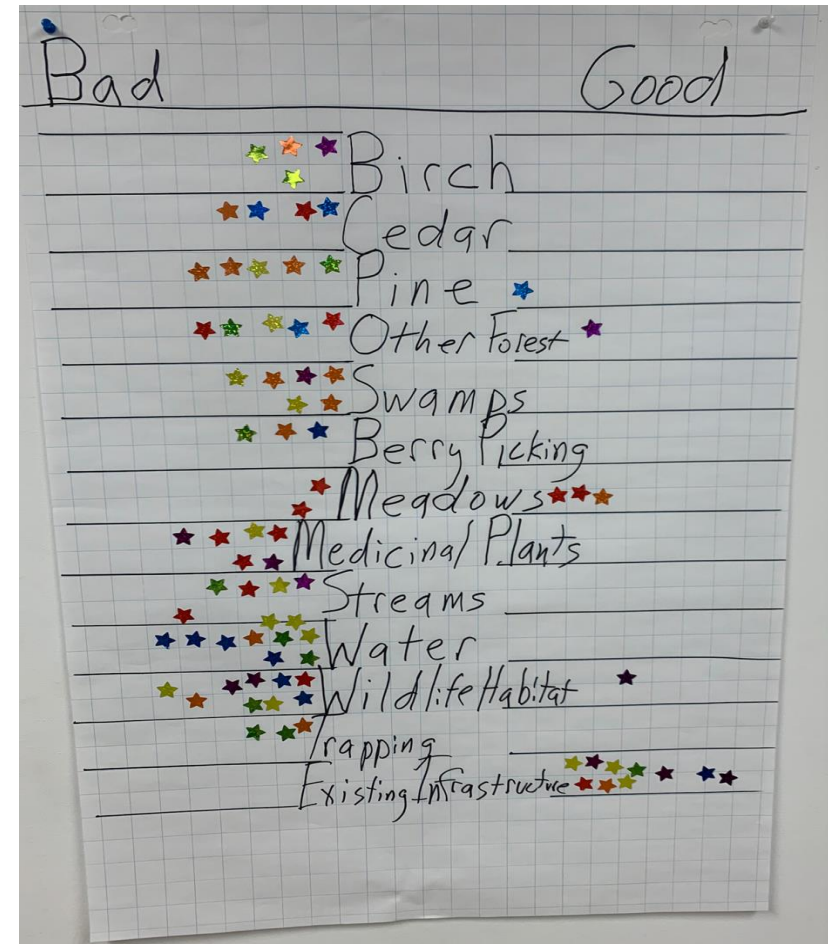 Bad Good
Birch
Cedar
Pine
Other Forest
Swamps
Berry Picking
Meadows
Medicinal Plants
Streams
Water
Wildlife Habitat
Trapping
Existing Infrastructure